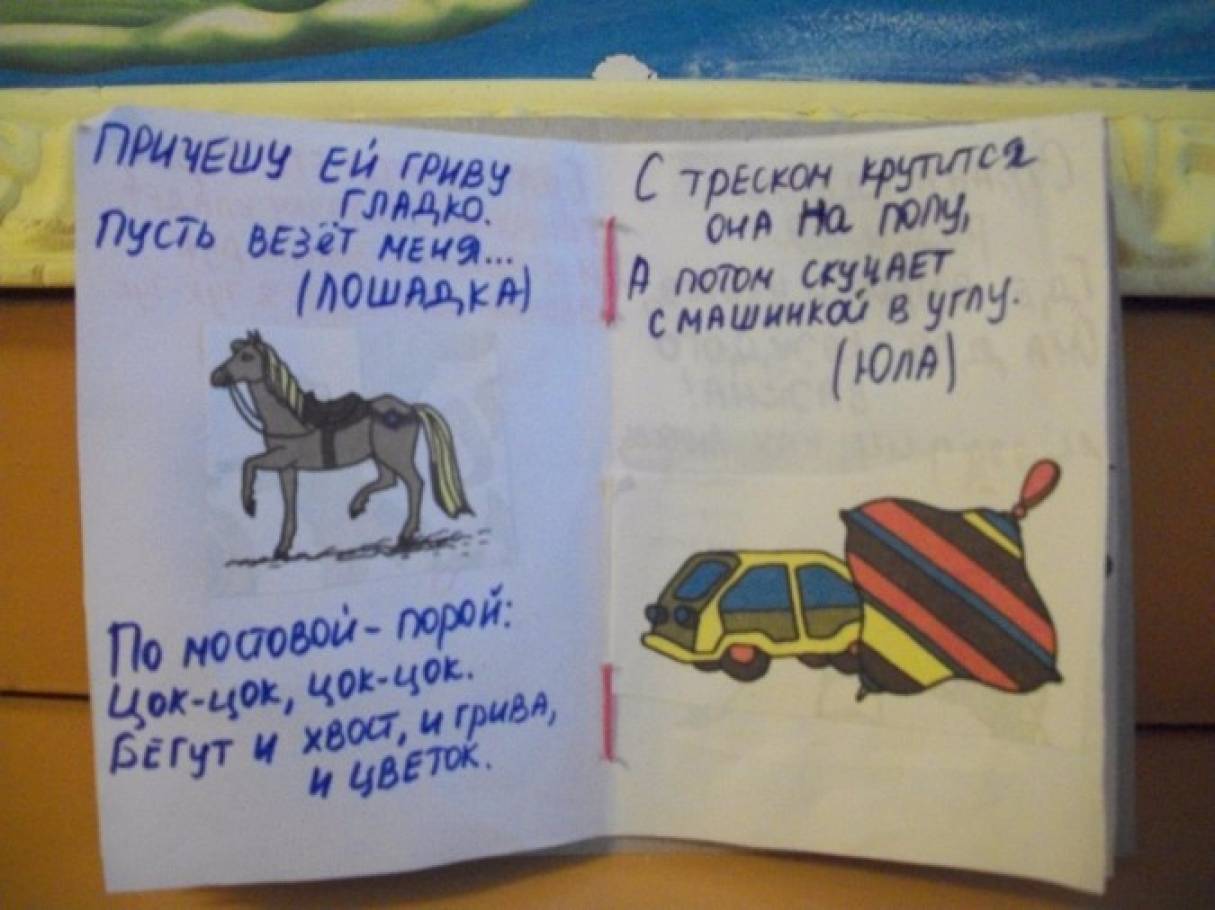 ПРИЧЕШУ ЕЙ ГРИВУ
ГЛАДКО.
ПУСТЬ ВЕЗЁТ МЕНЯ...
(ЛОШАДКА)
ПО МОСТОВОЙ - ПОРОЙ:
ЦОК-ЦОК, ЦОК-ЦОК.
БЕГУТ И ХВОСТ, И ГРИВА,
И ЦВЕТОК.
С ТРЕСКОМ КРУТИТСЯ
ОНА НА ПОЛУ,
А ПОТОМ СКУЧАЕТ
С МАШИНКОЙ В УГЛУ.
(ЮЛА)